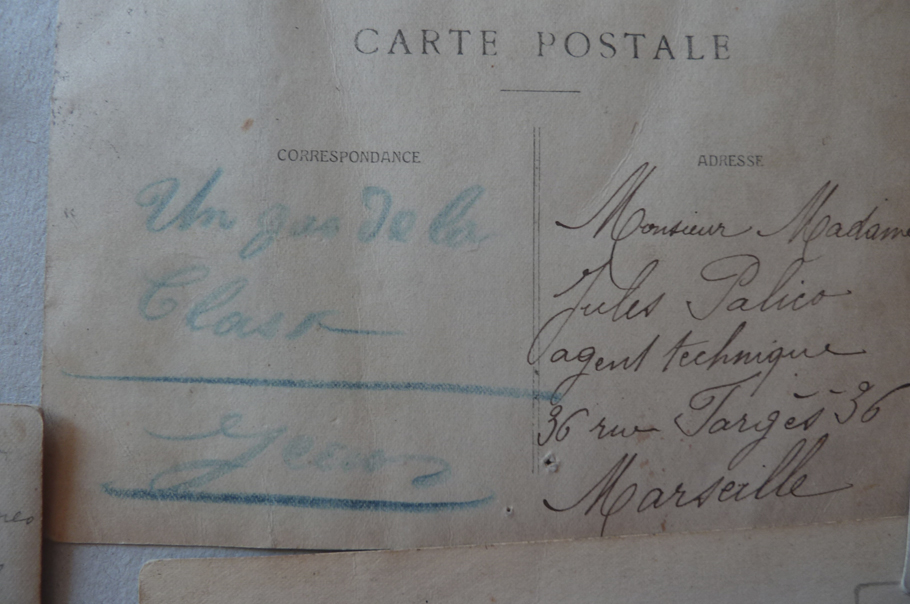 CARTE POSTALE
CORRESPONDANCE
Un gas de la
Classe
ADRESSE
Monsieur Madame
Jules Palico
agent technique
36 rue Targès 36
Marseille